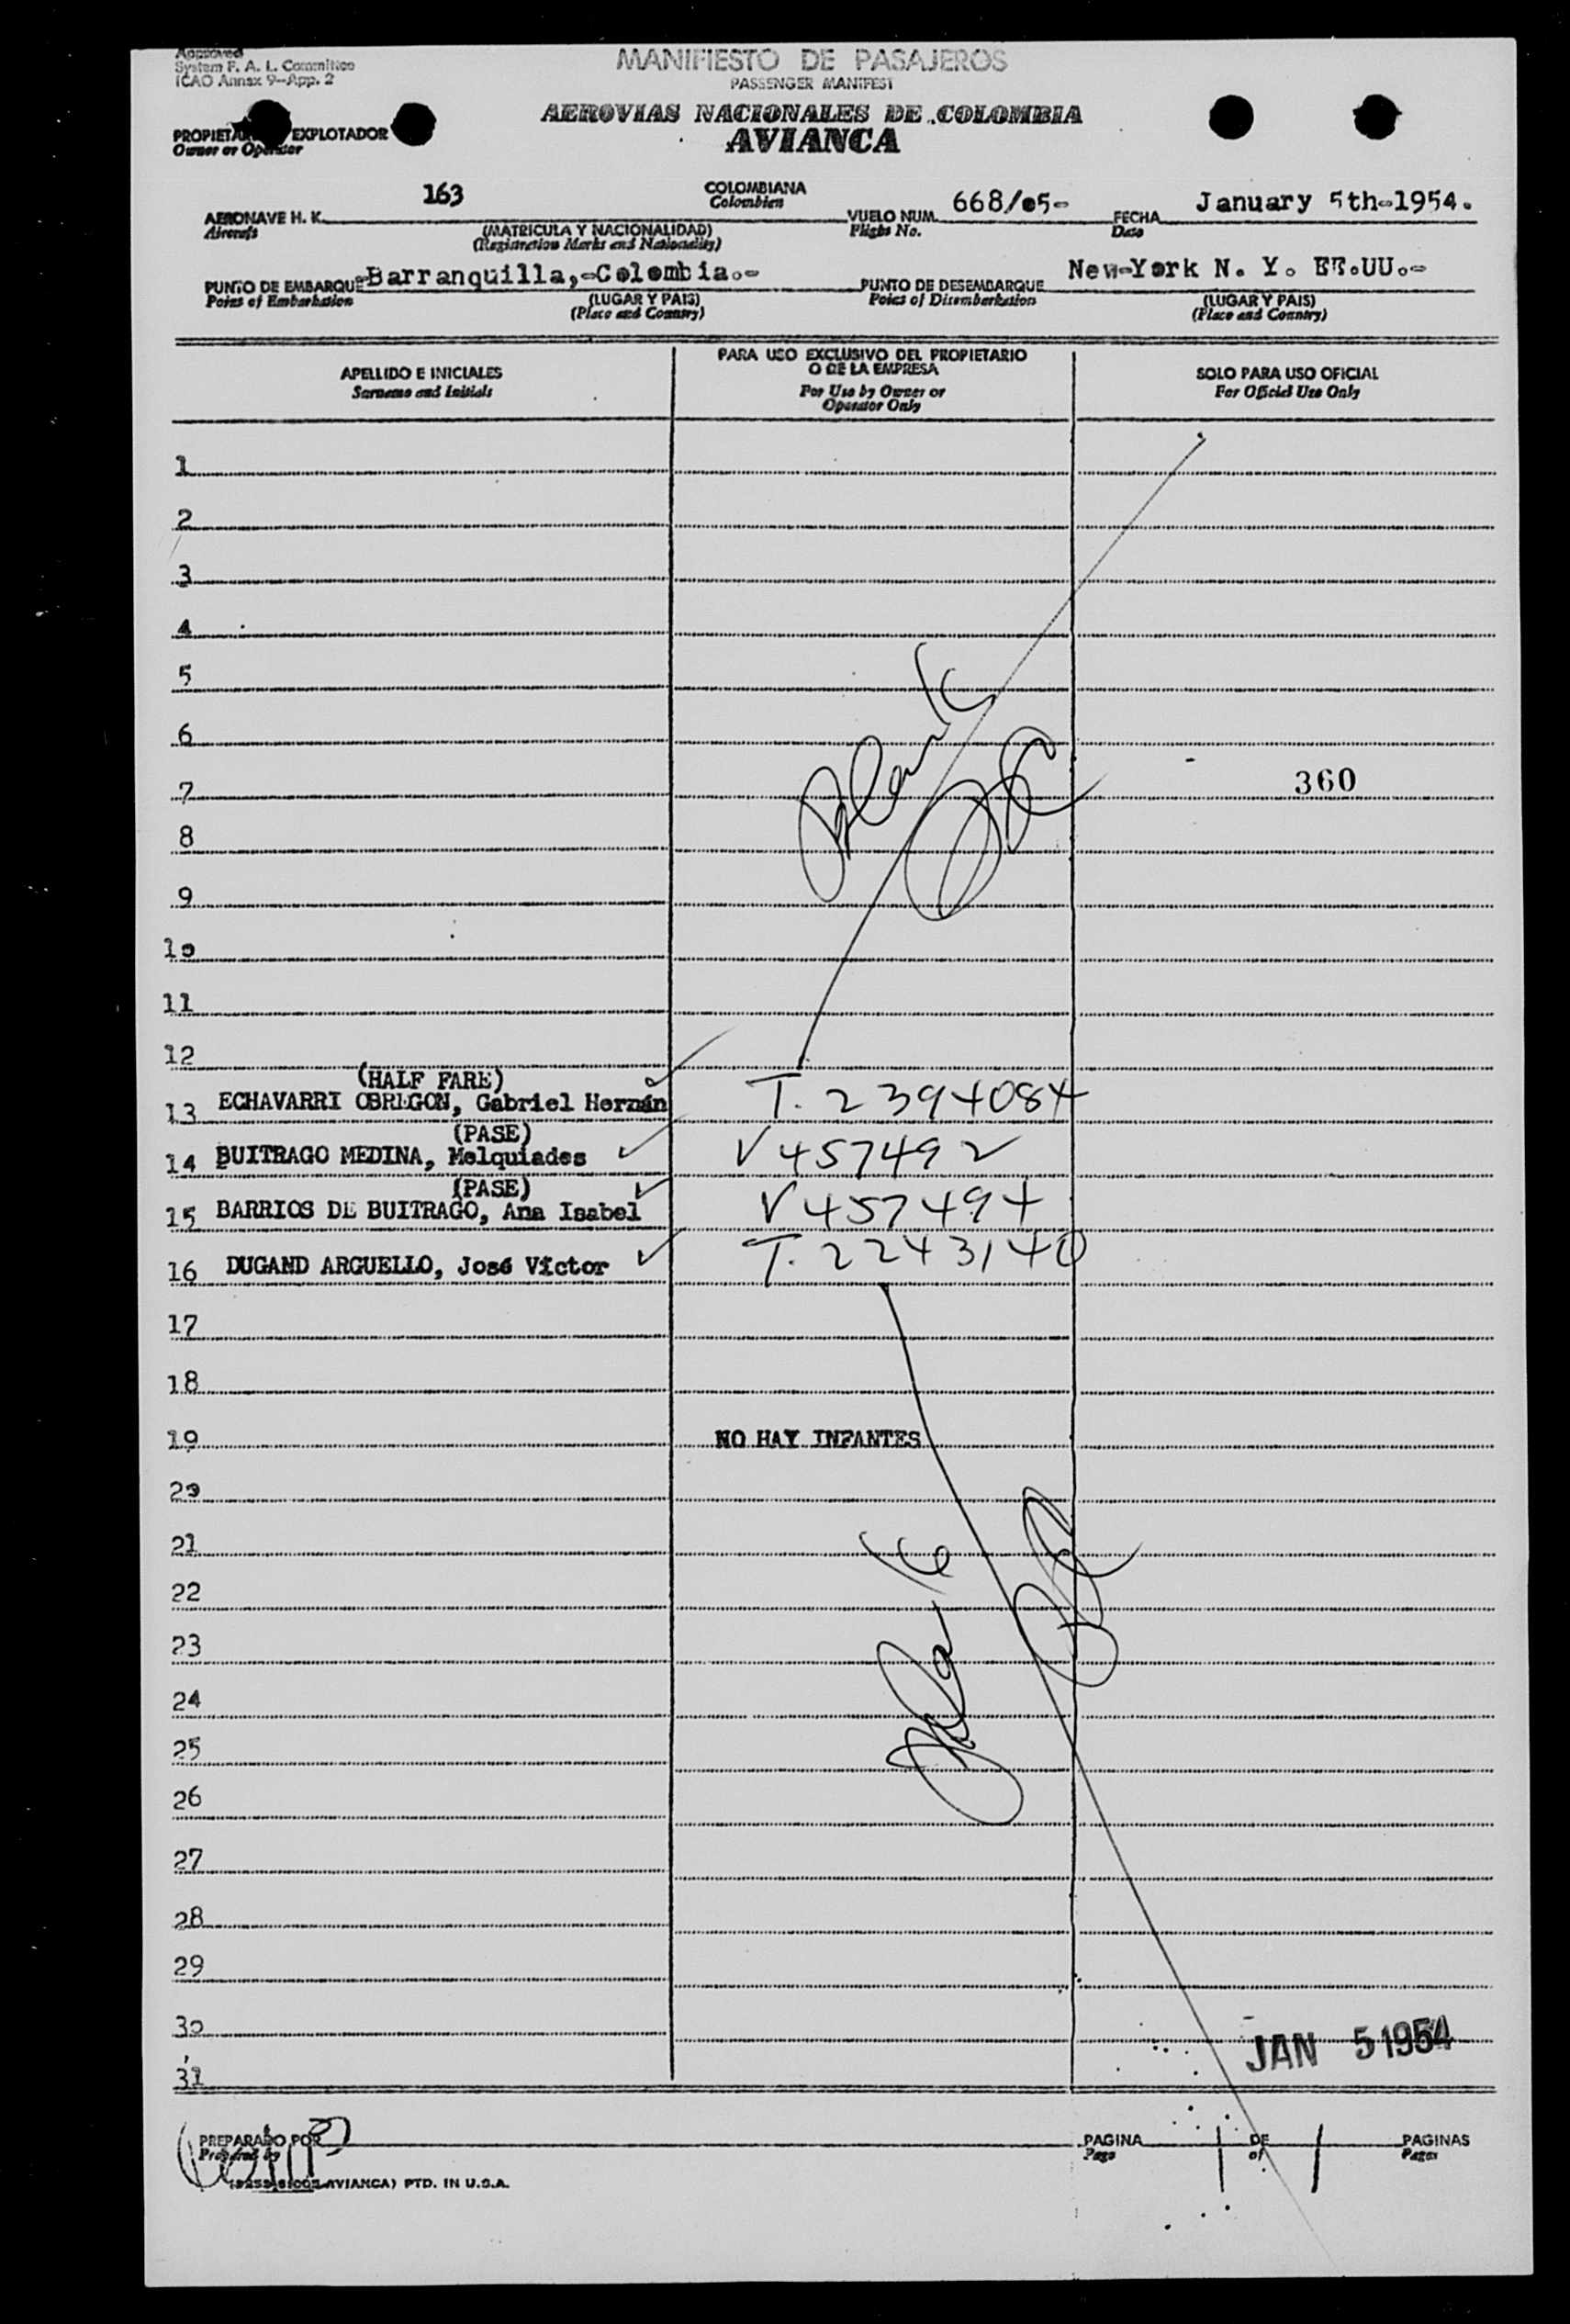 Approved
System F. A. L. Committee
ICAO Annex 9-App. 2
MANIFIESTO DE PASAJEROS
PASSENGER MANIFEST
AEROVIAS NACIONALES DE COLOMBIA
AVIANCA
EXPLOTADOR
Owner or Operator
AERONAVE H. K. 163 COLOMBIANA VUELO NUM. 668/05- FECHA January 5th-1954.
Aircraft Colombian Flight No. Date
(MATRICULA Y NACIONALIDAD)
(Registration Marks and Nationality)
PUNTO DE EMBARQUE Barranquilla,-Colombia.- PUNTO DE DESEMBARQUE New-York N. Y. EE.UU.-
Point of Embarkation (LUGAR Y PAIS) Point of Disembarkation (LUGAR Y PAIS)
(Place and Country) (Place and Country)
APELLIDO E INICIALES
Surname and Initials
PARA USO EXCLUSIVO DEL PROPIETARIO
O DE LA EMPRESA
For Use by Owner or
Operator Only
SOLO PARA USO OFICIAL
For Official Use Only
1
2
3
4
5
6
7 360
8
9
10
11
12
Blank
(HALF FARE)
13 ECHAVARRI OBREGON, Gabriel Hernán T. 2394084
(PASE)
14 BUITRAGO MEDINA, Melquiades V 457492
(PASE)
15 BARRIOS DE BUITRAGO, Ana Isabel V 457494
16 DUGAND ARGUELLO, José Víctor T. 2243140
17
18
19 NO HAY INFANTES
20
21
22
23
24
25
26
27
28
29
30
31
Blank
JAN 5 1954
PREPARADO POR PAGINA 1 DE 1 PAGINAS
Prepared by Page of Pages
AVIANCA) PTD. IN U.S.A.